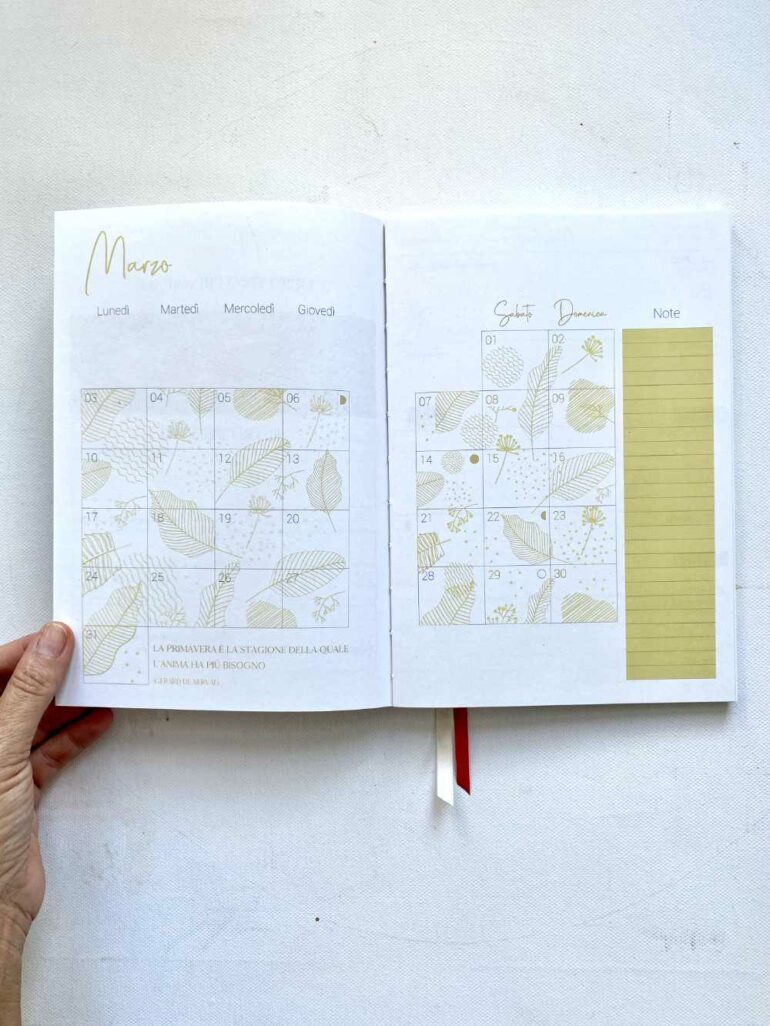 Marzo
Lunedì Martedì Mercoledì Giovedì
03 04 05 06
10 11 12 13
17 18 19 20
24 25 26 27
31
LA PRIMAVERA È LA STAGIONE DELLA QUALE
L'ANIMA HA PIÙ BISOGNO
GERARD DE NERVAL
Sabato Domenica Note
01 02
07 08 09
14 15 16
21 22 23
28 29 30